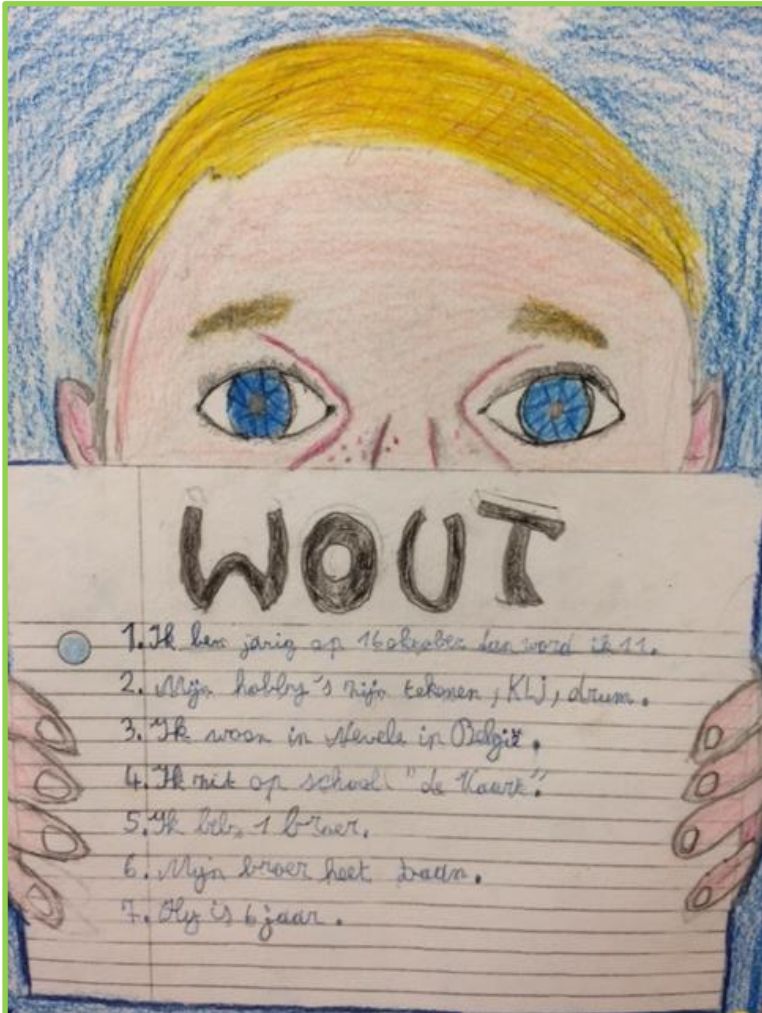 WOUT
1. Ik ben jarig op 16 oktober dan word ik 11.
2. Mijn hobby's zijn tekenen, KLJ, drum.
3. Ik woon in Nevele in België.
4. Ik zit op school "de Vaart".
5. Ik heb 1 broer.
6. Mijn broer heet Daan.
7. Hij is 6 jaar.